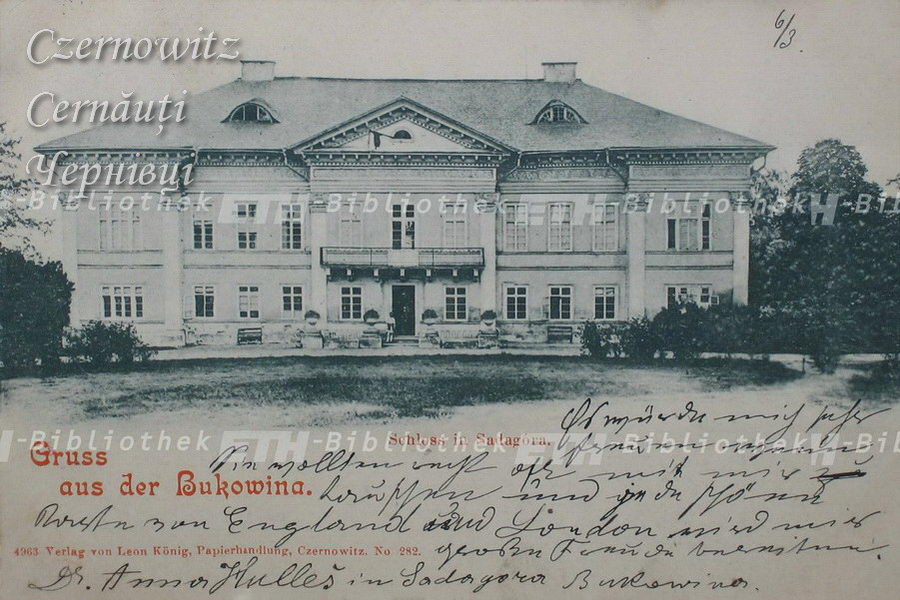 6/3.
Czernowitz
Cernăuți
Чернівці
ETH-Bibliothek ETH-Bibliothek ETH-Bibliothek
Es würde mich sehr
Schloss in Sadagóra.
freuen wenn
ETH-Bibliothek ETH-Bibliothek ETH-Bibliothek
Gruss
Sie wollten recht oft mit mir
aus der Bukowina.
tauschen und jede schöne
Karte von England und London wird mir
4963 Verlag von Leon König, Papierhandlung, Czernowitz. No 282.
große Freude bereiten.
Dr. Anna in Sadagora Bukowina